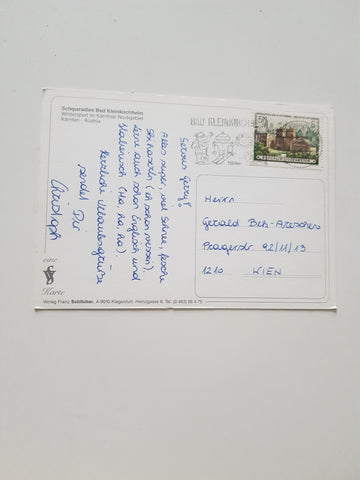 Schiparadies Bad Kleinkirchheim
Wintersport im Kärntner Nockgebiet
Kärnten - Austria
BAD KLEINKIRCH
REPUBLIK ÖSTERREICH
Servus Gerry!
Alles super, viel Schnee, fesche
Schihaserln (eh schon wissen).
Lerne auch schon Englisch und
Italienisch (Ha, ha, ha).
Herzliche Urlaubsgrüße
sendet Dir
Christoph
Herrn
Gerald
Pragerstr. 92/11/13
1210 WIEN
eine
Karte
Verlag Franz Schilcher, A-9010 Klagenfurt, Heinzgasse 8, Tel. (0 463) 56 4 75